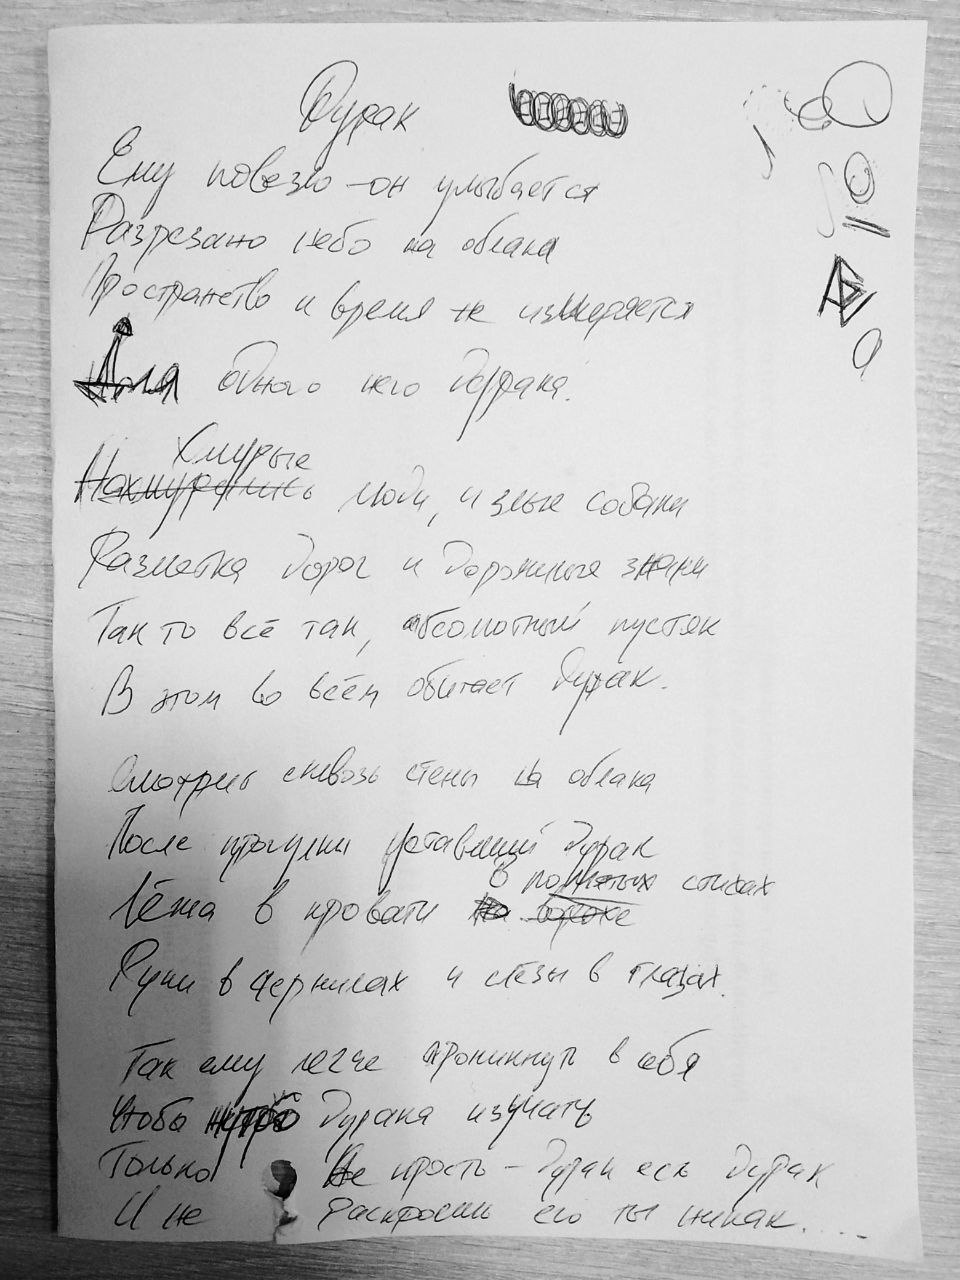 Дурак
Ему повезло - он улыбается
Разрезано небо на облака
Пространство и время не измеряется
Для одного него Дурака.
Хмурые
Нахмурились люди, и злые собаки
Разметка дорог и дорожные знаки
Так то всё так, абсолютный пустяк
В этом во всём обитает Дурак.
Смотрит сквозь стены на облака
После прогулки уставший Дурак
в помятых стихах
Лёжа в кровати на
Руки в чернилах и слёзы в глазах.
Так ему легче проникнуть в себя
Чтоба Дурака изучать
Только не прость - Дурак есь Дурак
И не раскроешь его ты никак....